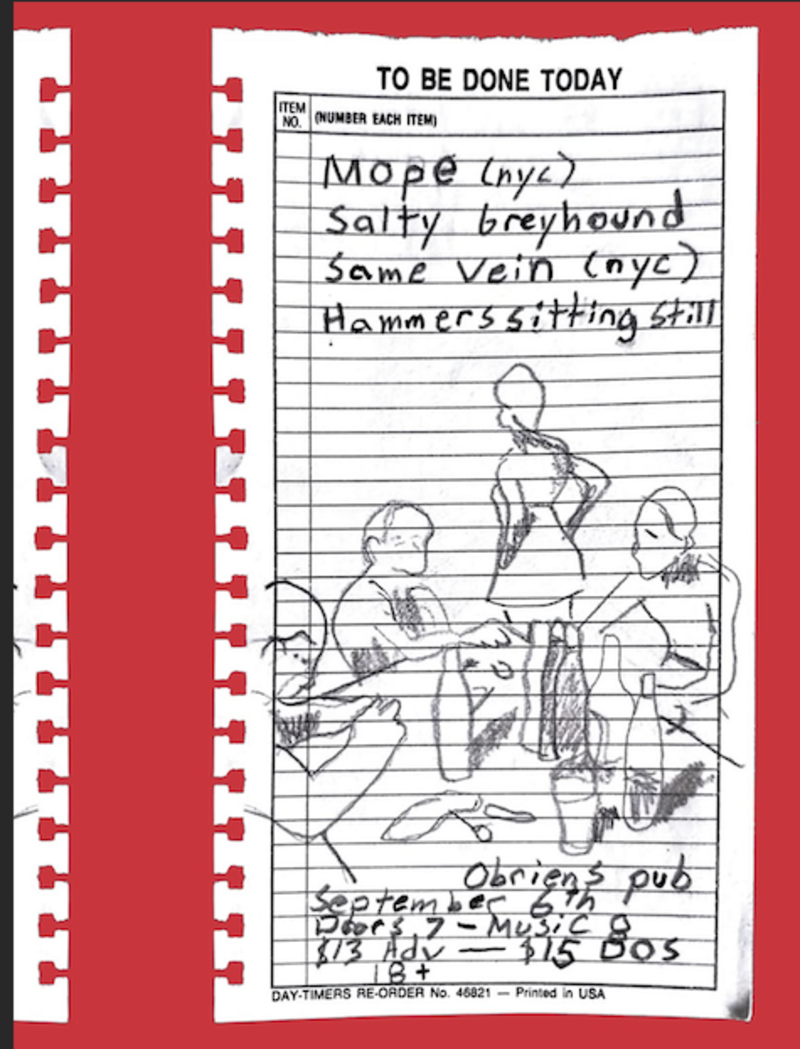 TO BE DONE TODAY
ITEM NO.
(NUMBER EACH ITEM)
Mope (nyc)
Salty Greyhound
Same Vein (nyc)
Hammers sitting Still
Obriens pub
September 6th
Doors 7 - Music 8
$13 Adv — $15 DOS
18+
DAY-TIMERS RE-ORDER No. 46821 — Printed in USA